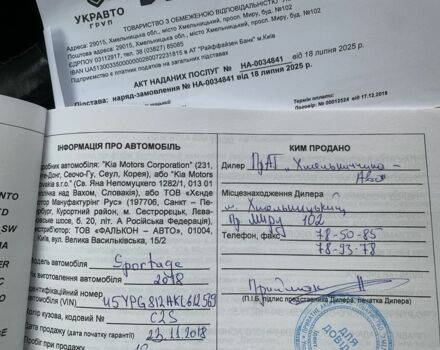 УКРАВТО
ГРУП
ТОВАРИСТВО З ОБМЕЖЕНОЮ ВІДПОВІДАЛЬНІСТЮ
Адреса: 29015, Хмельницька обл., місто Хмельницький, просп. Миру, буд. №102
29015, Хмельницька обл., місто Хмельницький, просп. Миру, буд. №102
тел. 38 (03827) 85085
в АТ "Райффайзен Банк" м.Київ
Підприємство є платник податків на загальних підставах
АКТ НАДАНИХ ПОСЛУГ № НА-0034841 від 18 липня 2025 р.
Підстава: наряд-замовлення № НА-0034841 від 18 липня 2025 р.
№ 00012524 від 17.12.2018
ІНФОРМАЦІЯ ПРО АВТОМОБІЛЬ
робник автомобіля: "Kia Motors Corporation" (231,
Сеул, Корея), або "Kia Motors
Slovakia s.r.o." (Св. Яна Непомуцкего 1282/1, 013 01
над Вахом, Словакія), або ТОВ «Хенде
Мануфактурінг Рус» (197706, Санкт – Пе-
тербург, Курортний район, м. Сестрорецьк, Лева-
шовське шосе, б. 20, літ. А Російська Федерація),
ТОВ «ФАЛЬКОН – АВТО», 01004,
Київ, вул. Велика Васильківська, 15/2
Модель автомобіля Sportage
Рік виготовлення автомобіля 2018
Ідентифікаційний номер
автомобіля (VIN) U5YPG812HKL612569
Колір кузова, кодовий № C2S
Дата продажу (дата початку гарантії) 23.11.2018
Пробіг при продажу
КИМ ПРОДАНО
Дилер ПрАТ „Хмельниччина –
Авто"
Місцезнаходження Дилера
м. Хмельницький
пр Миру 102
Телефон, факс 78-50-85
78-93-78
П.І.Б., підпис представника Дилера, печатка Дилера
ДЛЯ